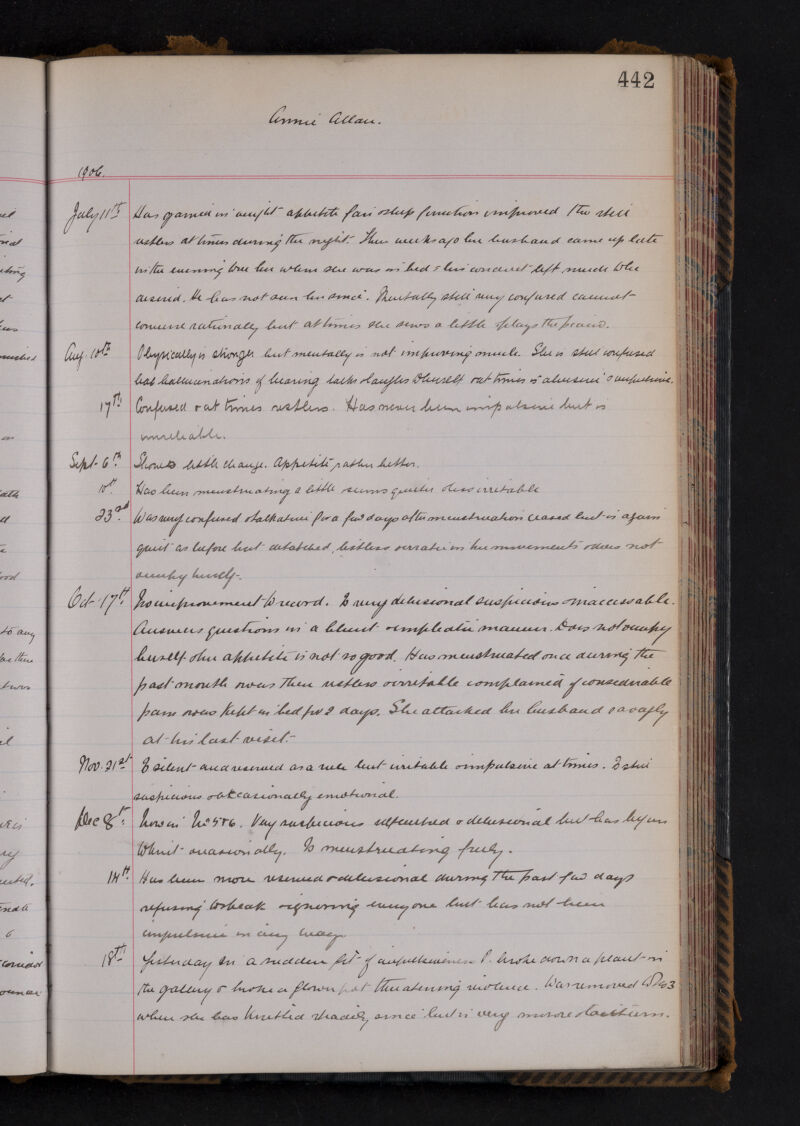 442
Annie Allan.
1906.
July 11th Has gained in weight appetite fair & sleep function improved tho still
restless at times during the night. Three weeks ago her husband came up late
in the evening to see her when she was in bed & his conduct left much to be
desired. He has not seen her since. Mentally still very confused cannot
converse rationally but at times she sews a little & plays the piano.
Aug. 10th Physically is stronger but mentally is not improving much. She is still confused
has hallucinations of hearing talks & laughs to herself & at times is abusive & impulsive.
17th Confused & at times restless. Has never been impulsive but is
unreliable.
Sept. 6th Shows little change. Appetite rather better.
10th Has been menstruating a little seems quieter & less irritable
23rd Was very confused & talkative for a few days after menstruation ceased but is again
quiet as before but detached, listless & erratic in her movements & does not
occupy herself.
Oct 17th No improvement to record. Is very delusional suspicious & inaccessable.
Answers questions in a blunt & emphatic manner. Does not occupy
herself & her appetite is not so good. Has menstruated once during the
past month & was then restless & irritable & complained of considerable
pain & was kept in bed for 2 days. She attacked her husband savagely
at his last visit.
Nov. 21st Is silent and reserved as a rule but irritable & impulsive at times. Is still
suspicious & occasionally emotional.
Dec 8th Now in No 5 & 6. Very suspicious & delusional but has begun
to knit occasionally. Is menstruating freely.
14th Has been more reserved & delusional during the past few days
refusing to speak & ignoring everyone but has not been
impulsive in any way
18th Yesterday in a sudden fit of impulsiveness P. broke down a plant in
the gallery & broke a flower pot threatening violence. Was removed to No 3
where she has knitted steadily since but is very morose & taciturn.